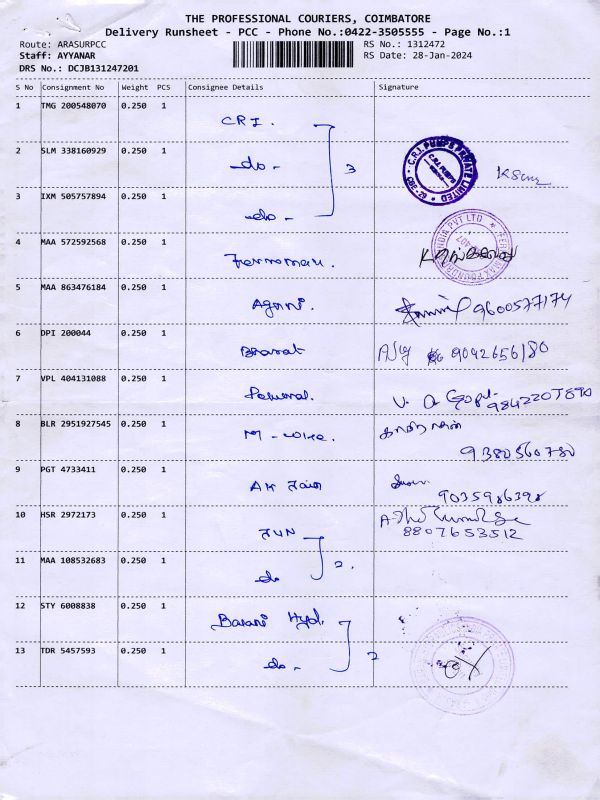 THE PROFESSIONAL COURIERS, COIMBATORE
Delivery Runsheet - PCC - Phone No.:0422-3505555 - Page No.:1
Route: ARASURPCC
RS No.: 1312472
Staff: AYYANAR
RS Date: 28-Jan-2024
DRS No.: DCJB131247201
S No Consignment No Weight PCS Consignee Details Signature
1 TMG 200548070 0.250 1 CRI.
2 SLM 338160929 0.250 1 -do- 3
C.R.I. PUMPS PRIVATE LIMITED
CBE-29
3 IXM 505757894 0.250 1 -do-
4 MAA 572592568 0.250 1
INDIA PVT LTD
5 MAA 863476184 0.250 1 Agani. 9600577174
6 DPI 200044 0.250 1 Bharat 9042656180
7 VPL 404131088 0.250 1
8 BLR 2951927545 0.250 1 9380560780
9 PGT 4733411 0.250 1 AK Jain 9035986398
10 HSR 2972173 0.250 1 JUN 8807653512
11 MAA 108532683 0.250 1 do 2.
12 STY 6008838 0.250 1 Barani Hyd.
13 TDR 5457593 0.250 1 -do- 2